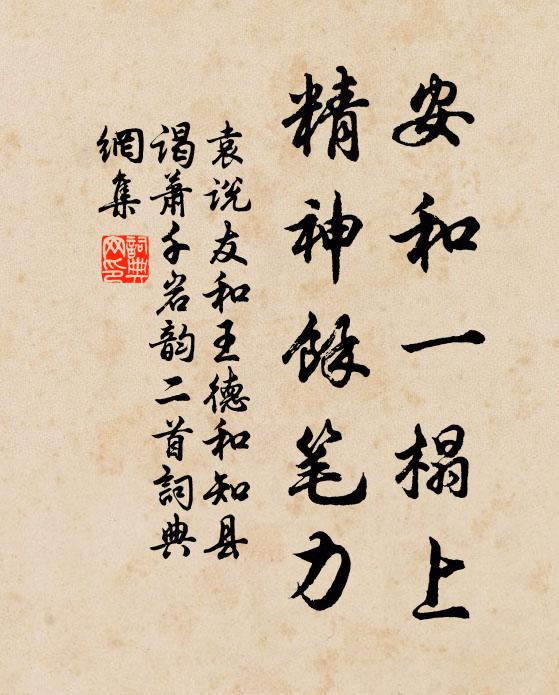 安和一榻上
精神餘笔力
袁说友和王德和知县
谒萧千岩韵二首詞典
網集
詞典
网印